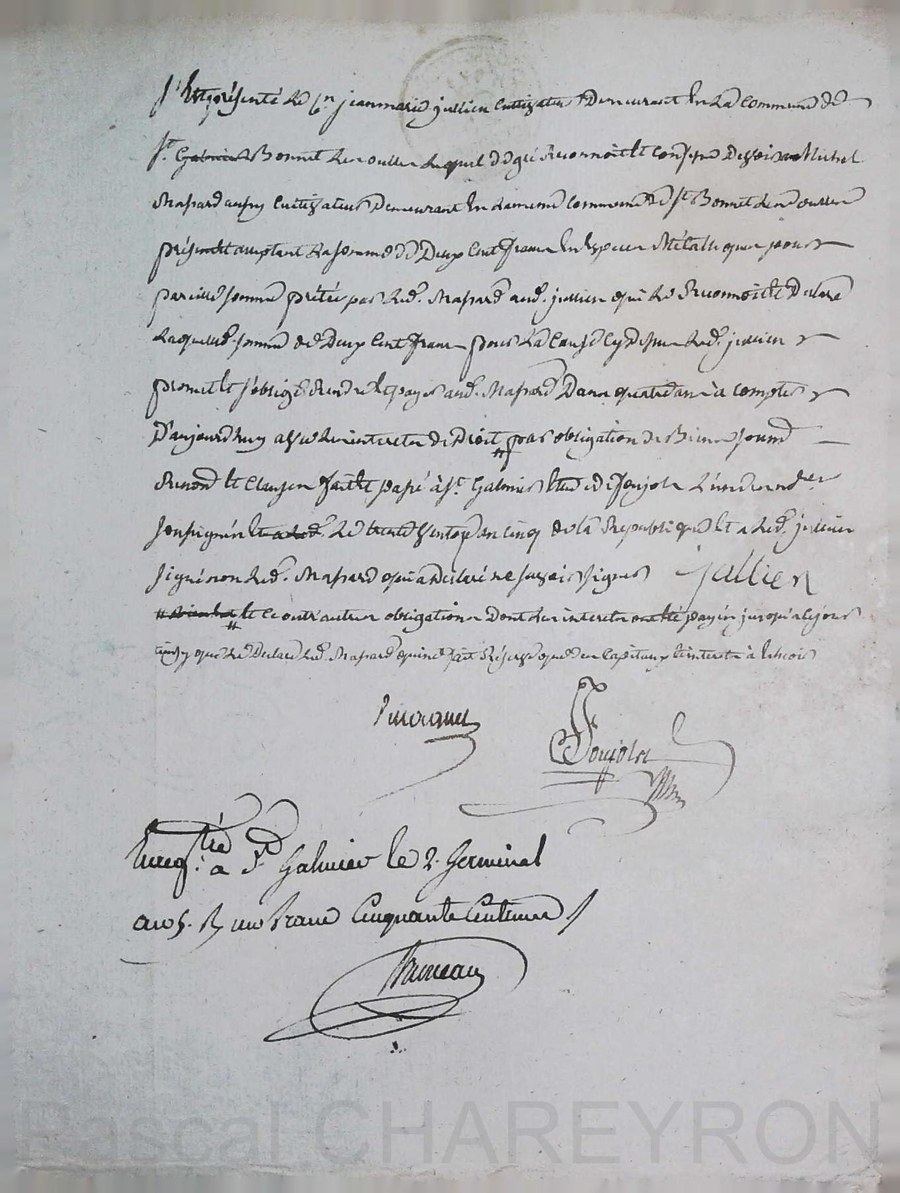 S'est présenté le Cn jeanmarie jullien cultivateur demeurant en la commune de
St Galmier Bonnet les oulles lequel de gré reconnoit et confesse devoir a Michel
Massard aussy cultivateur demeurant en la meme commune de St Bonnet les oulles
présent acceptant la somme de deux cent francs en especes métalliques pour
pareille somme prétée par led. Massard aud. jullien qui le reconnoit et declare
laquelle d. somme de deux cent francs pour la cause cy dessus led. jullien
promet et s'oblige rendre et payer aud. Massard dans quatre ans à compter
D'aujourdhuy avec les interets de Droit # par obligation de Biens soumis
Renon. et clauses fait et passé à St Galmier etude de Foujols l'un des nores
soussignés et a led. le trente ventose an cinq de la Republique et a led. jullien
signé non led. Massard qui a declaré ne savoir signer jullien
# et ce outre autres obligations dont les interets ont été payés jusqu'à ce jour
ainsy que le declare led. Massard qui ne fait réserve que des capitaux et interets à échoir
Foujols
Enregtré a St Galmier le 2. Germinal
an 5. R un franc Cinquante Centimes
Bruneau
Pascal CHAREYRON